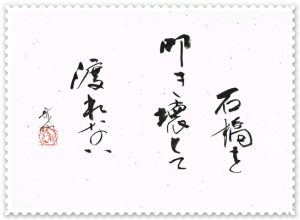 石橋を
叩き壊して
渡れない